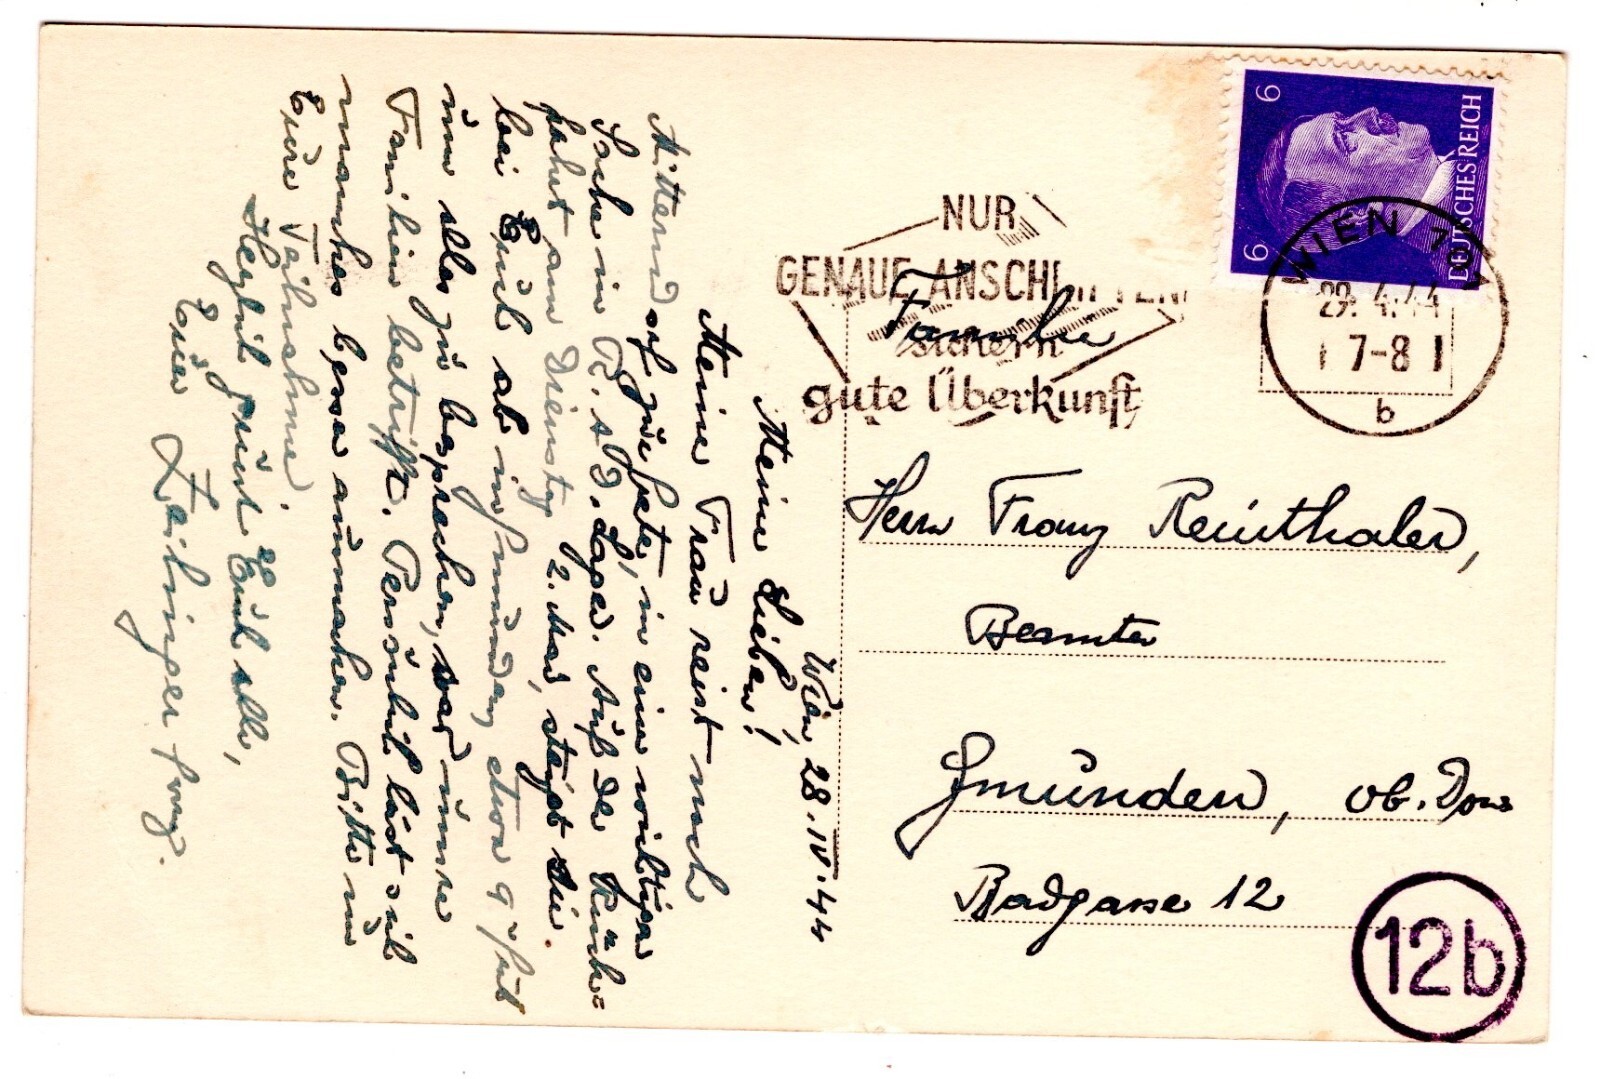 Wien 28.IV.44
Meine Lieben!
Meine Frau reist nach
Attersee auf zu bete, in einer wichtigen
Sache in R.A.D. Lager. Auf der Rück=
fahrt am Dienstag 2. Mai, steigt sie
bei Euch ab in Gmunden etwa 9h früh
um alles zu besprechen, was unsere
Familien betrifft. Persönlich lässt sich
manches besser ausmachen. Bitte um
Eure Teilnahme.
Herzlich grüsst Euch alle,
Euer Zeilinger Franz.
NUR
GENAUE ANSCHRIFTEN
sichern
gute Überkunft
DEUTSCHES REICH
6
6
WIEN 7
29. 4. 44
7-8
b
Familie
Herrn Franz Reinthaler,
Beamter
Gmunden, ob. Don
Badgasse 12
12b